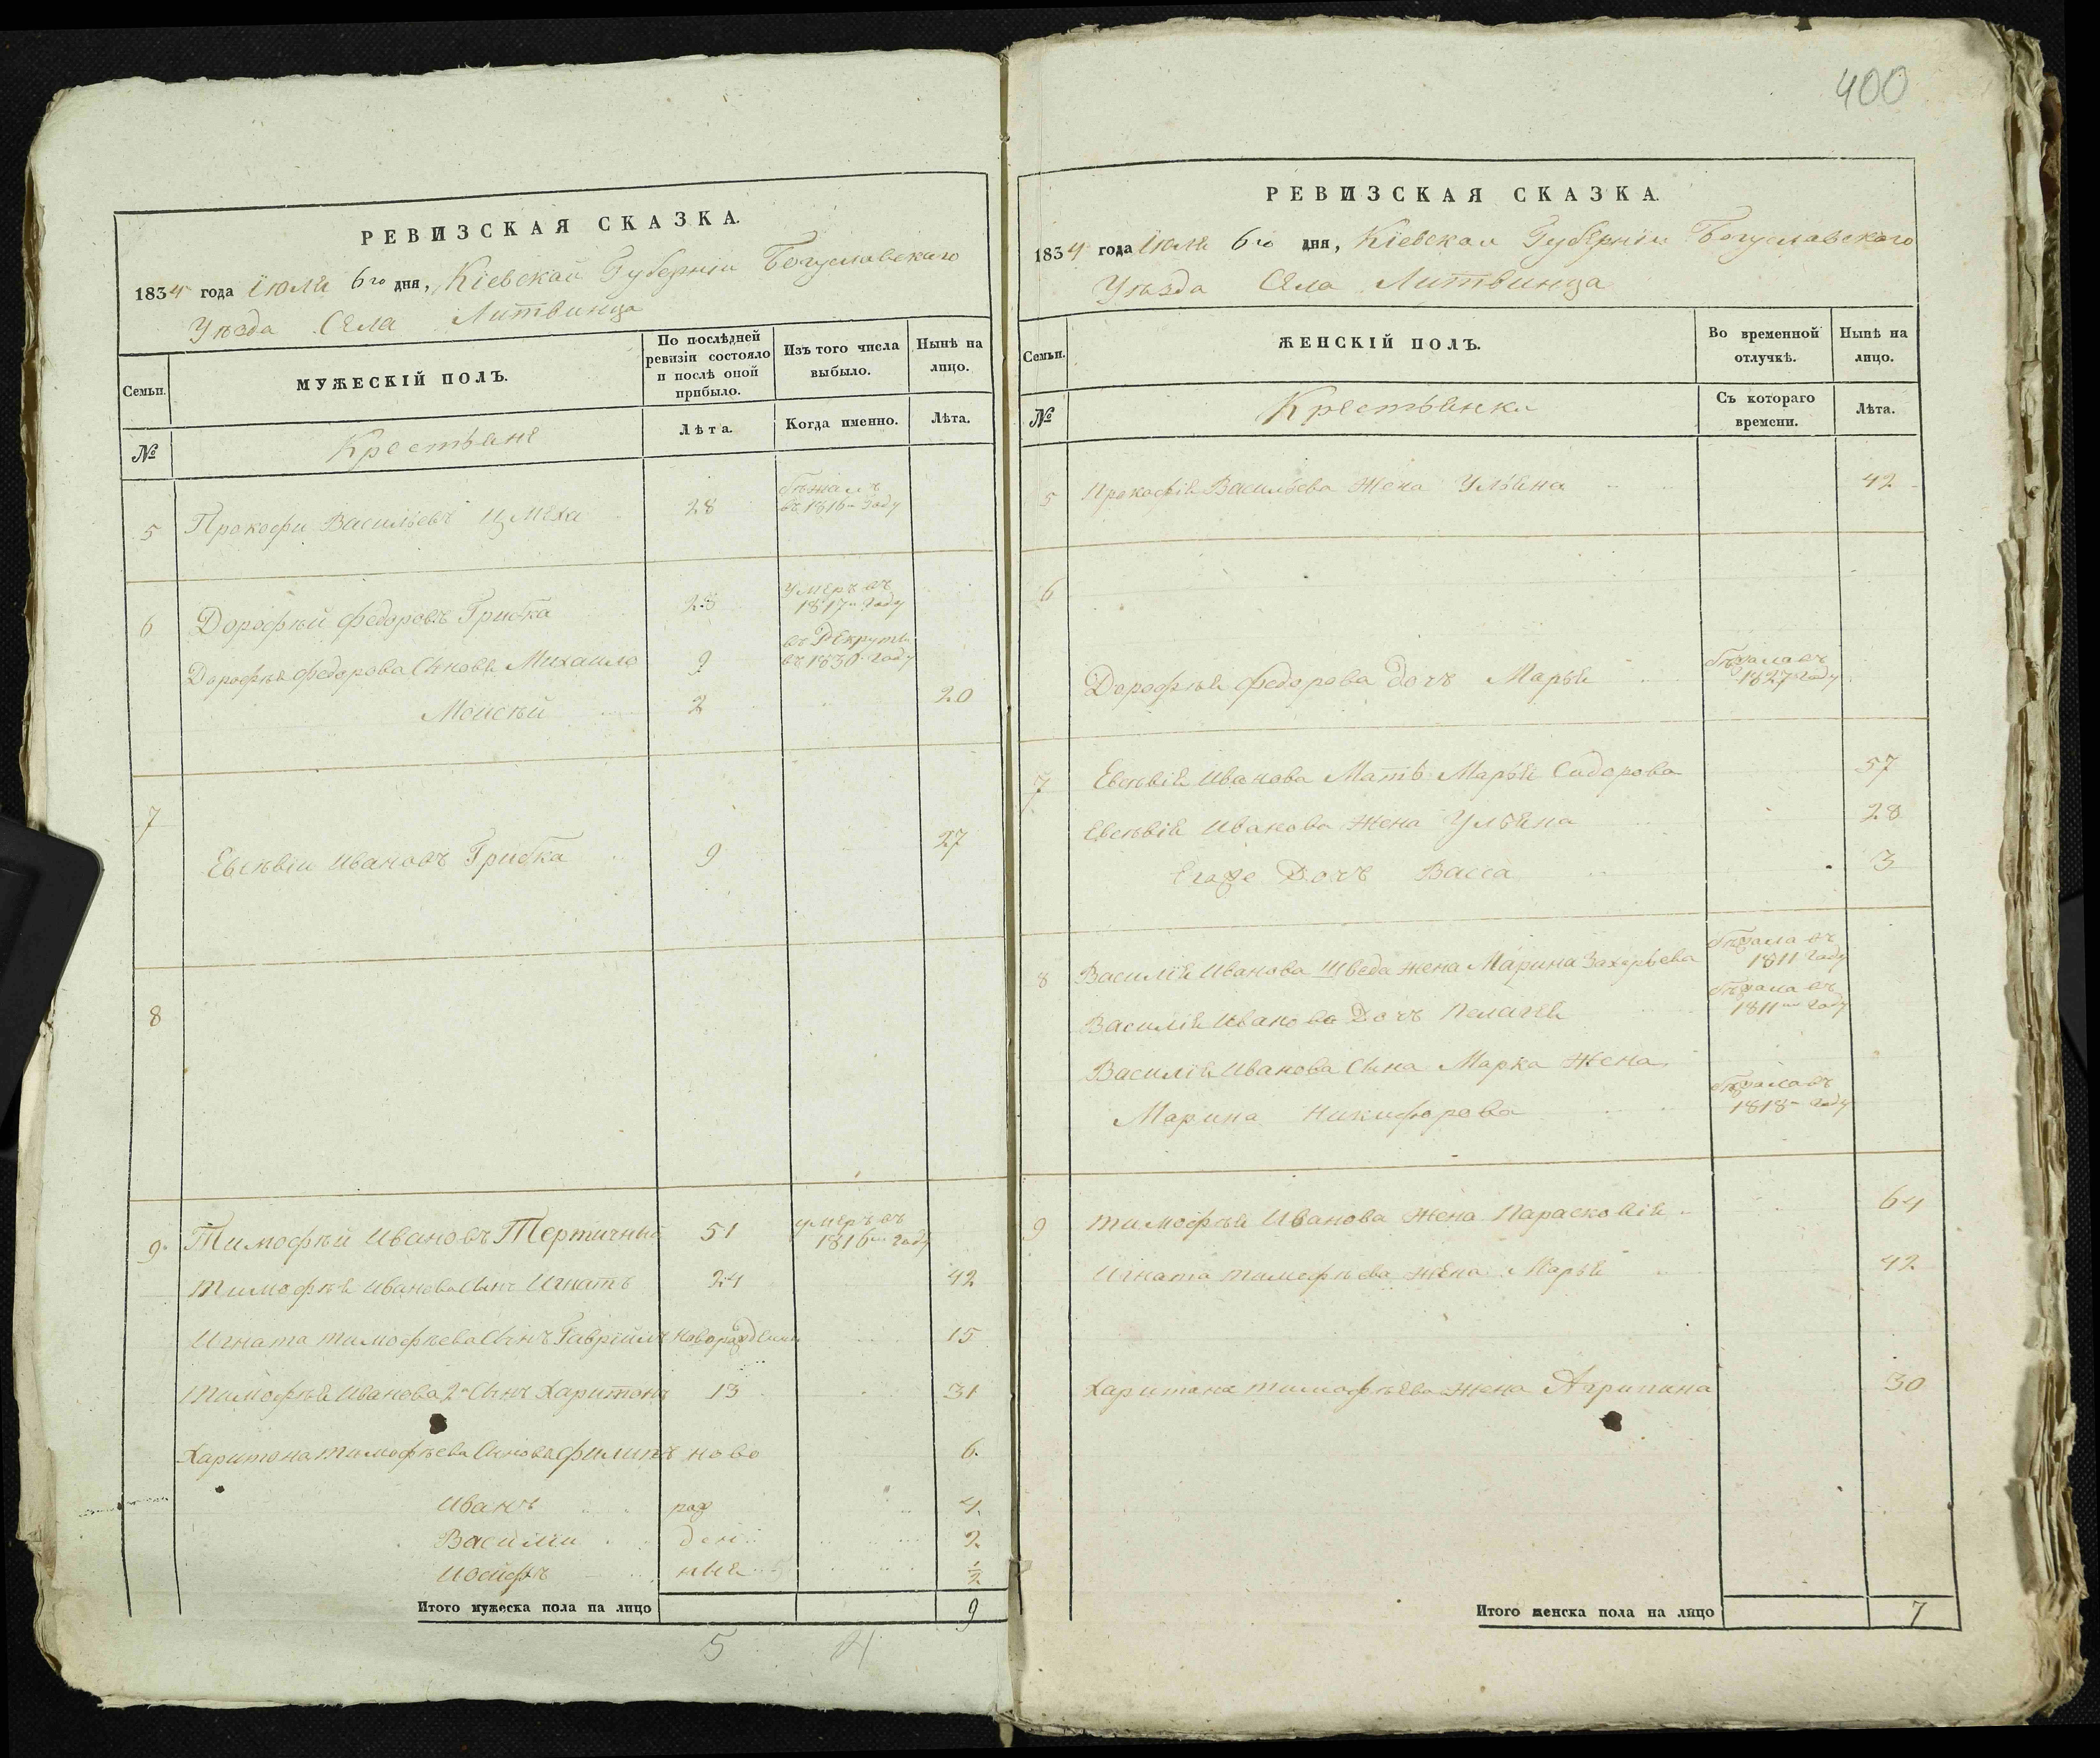 РЕВИЗСКАЯ СКАЗКА.
1834 года Іюля 6го дня, Кіевской Губерніи Богуславскаго
Уѣзда Села Литвинца
Семьи.
МУЖЕСКІЙ ПОЛЪ.
По послѣдней ревизіи состояло и послѣ оной прибыло.
Изъ того числа выбыло.
Нынѣ на лицо.
№
Крестьяне
Лѣта.
Когда именно.
Лѣта.
5 Прокофи Васильевъ 28 бѣжалъ
въ 1816м году
6 Дорофѣй Федоровъ Грибка 28 умеръ въ
1817м году
Дорофѣя Федорова Сыновя Михаило 9 въ Рекруты
въ 1830 году
Моисѣй 2 20
7
Евсѣвіи Ивановъ Грибка 9 27
8
9. Тимофѣй Ивановъ Тертичный 51 умеръ въ
1816м году
Тимофѣя Иванова Сынъ Игнатъ 24 42
Игната Тимофѣева Сынъ Гаврійлъ новорожденны 15
Тимофѣя Иванова 2й Сынъ Харитонъ 13 31
Харитона Тимофѣева Сыновя Филипъ ново 6.
Иванъ рож 4.
Василіи ден 2.
Иосифъ ныя ½
Итого мужеска пола на лицо 9
5 4
400
РЕВИЗСКАЯ СКАЗКА.
1834 года Іюля 6го дня, Кіевской Губерніи Богуславскаго
Уѣзда Села Литвинца
Семьи.
ЖЕНСКІЙ ПОЛЪ.
Во временной отлучкѣ.
Нынѣ на лицо.
№
Крестьянки
Съ котораго времени.
Лѣта.
5 Прокофія Васильева Жена Ульяна 42
6
Дорофѣя Федорова дочъ Марья бѣжала въ
1827 году
7 Евсѣвія Иванова Мать Марья Сидорова 57
Евсѣвія Иванова Жена Ульяна 28
Егоже Дочъ Васса 3
8 Василія Иванова Шведа жена Марина Захарьева бѣжала въ
1811 году
Василія Иванова Дочъ Пелагея бѣжала въ
1811м году
Василія Иванова Сына Марка Жена
Марина Никифорова бѣжала въ
1818м году
9 Тимофѣя Иванова Жена Парасковія 64
Игната Тимофѣева Жена Марья 42
Харитона Тимофѣева Жена Агрипина 30
Итого женска пола на лицо 7